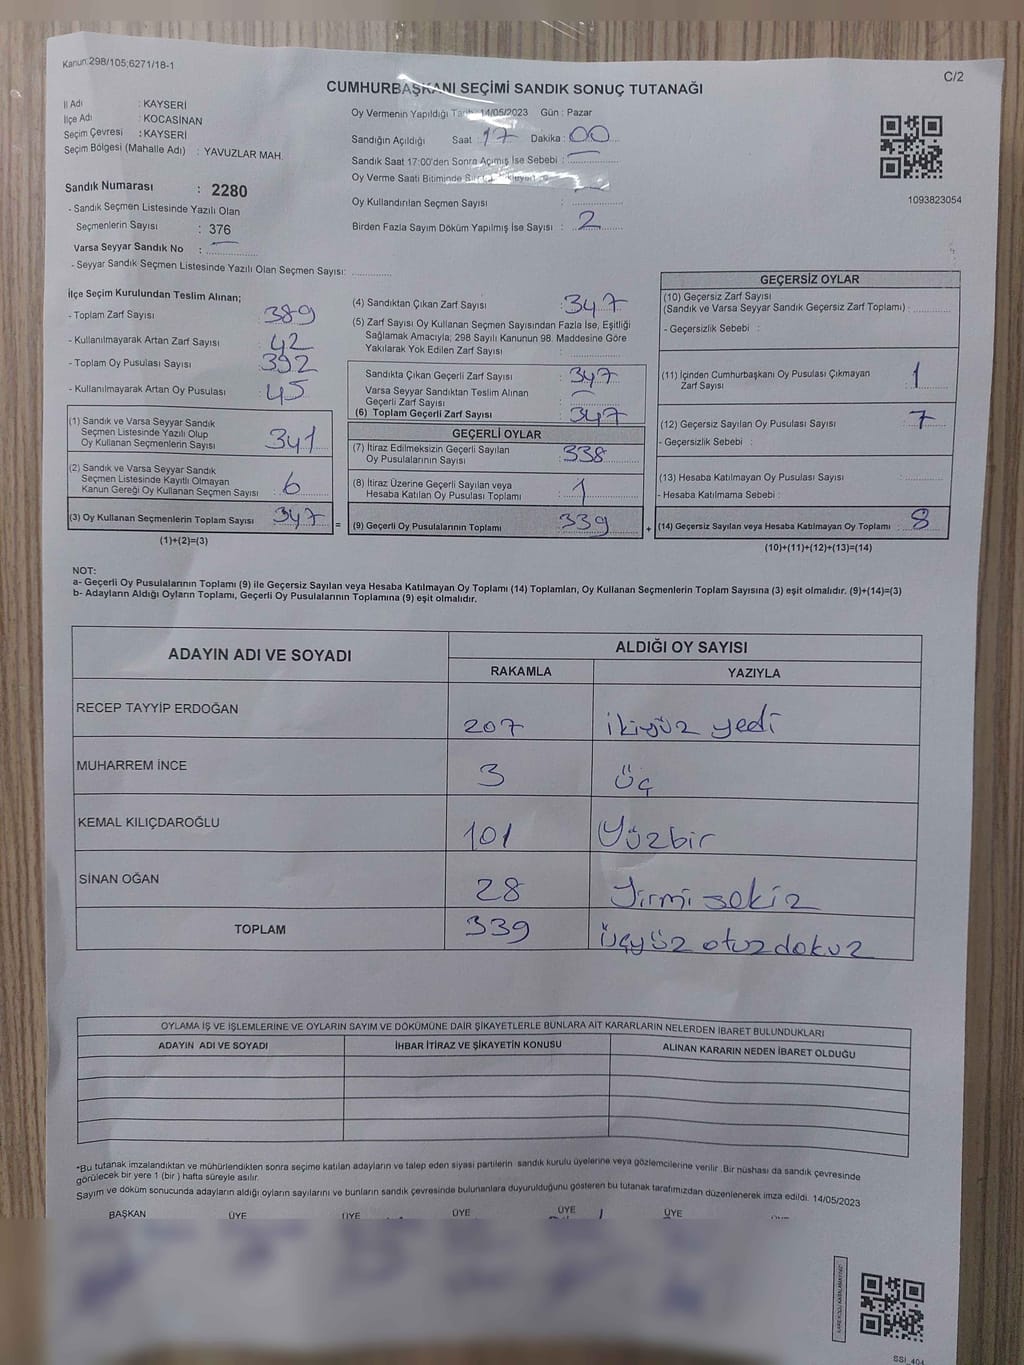 Kanun:298/105;6271/18-1
C/2
CUMHURBAŞKANI SEÇİMİ SANDIK SONUÇ TUTANAĞI
İl Adı : KAYSERİ
İlçe Adı : KOCASİNAN
Seçim Çevresi : KAYSERİ
Seçim Bölgesi (Mahalle Adı) : YAVUZLAR MAH.
Oy Vermenin Yapıldığı Tarih: 14/05/2023 Gün : Pazar
Sandığın Açıldığı Saat : 17 Dakika : 00
Sandık Saat 17:00'den Sonra Açılmış İse Sebebi :
Oy Verme Saati Bitiminde
Oy Kullandırılan Seçmen Sayısı :
Birden Fazla Sayım Döküm Yapılmış İse Sayısı : 2
1093823054
Sandık Numarası : 2280
- Sandık Seçmen Listesinde Yazılı Olan
Seçmenlerin Sayısı : 376
Varsa Seyyar Sandık No :
- Seyyar Sandık Seçmen Listesinde Yazılı Olan Seçmen Sayısı:
İlçe Seçim Kurulundan Teslim Alınan;
- Toplam Zarf Sayısı : 389
- Kullanılmayarak Artan Zarf Sayısı : 42
- Toplam Oy Pusulası Sayısı : 392
- Kullanılmayarak Artan Oy Pusulası : 45
(1) Sandık ve Varsa Seyyar Sandık
Seçmen Listesinde Yazılı Olup
Oy Kullanan Seçmenlerin Sayısı 341
(2) Sandık ve Varsa Seyyar Sandık
Seçmen Listesinde Kayıtlı Olmayan
Kanun Gereği Oy Kullanan Seçmen Sayısı 6
(3) Oy Kullanan Seçmenlerin Toplam Sayısı 347
(1)+(2)=(3)
=
(4) Sandıktan Çıkan Zarf Sayısı : 347
(5) Zarf Sayısı Oy Kullanan Seçmen Sayısından Fazla İse, Eşitliği
Sağlamak Amacıyla; 298 Sayılı Kanunun 98. Maddesine Göre
Yakılarak Yok Edilen Zarf Sayısı :
Sandıkta Çıkan Geçerli Zarf Sayısı : 347
Varsa Seyyar Sandıktan Teslim Alınan
Geçerli Zarf Sayısı :
(6) Toplam Geçerli Zarf Sayısı : 347
GEÇERLİ OYLAR
(7) İtiraz Edilmeksizin Geçerli Sayılan
Oy Pusulalarının Sayısı : 338
(8) İtiraz Üzerine Geçerli Sayılan veya
Hesaba Katılan Oy Pusulası Toplamı : 1
(9) Geçerli Oy Pusulalarının Toplamı 339
+
GEÇERSİZ OYLAR
(10) Geçersiz Zarf Sayısı
(Sandık ve Varsa Seyyar Sandık Geçersiz Zarf Toplamı) :
- Geçersizlik Sebebi :
(11) İçinden Cumhurbaşkanı Oy Pusulası Çıkmayan
Zarf Sayısı : 1
(12) Geçersiz Sayılan Oy Pusulası Sayısı : 7
- Geçersizlik Sebebi :
(13) Hesaba Katılmayan Oy Pusulası Sayısı :
- Hesaba Katılmama Sebebi :
(14) Geçersiz Sayılan veya Hesaba Katılmayan Oy Toplamı : 8
(10)+(11)+(12)+(13)=(14)
NOT:
a- Geçerli Oy Pusulalarının Toplamı (9) ile Geçersiz Sayılan veya Hesaba Katılmayan Oy Toplamı (14) Toplamları, Oy Kullanan Seçmenlerin Toplam Sayısına (3) eşit olmalıdır. (9)+(14)=(3)
b- Adayların Aldığı Oyların Toplamı, Geçerli Oy Pusulalarının Toplamına (9) eşit olmalıdır.
ADAYIN ADI VE SOYADI
ALDIĞI OY SAYISI
RAKAMLA YAZIYLA
RECEP TAYYİP ERDOĞAN 207 ikiyüz yedi
MUHARREM İNCE 3 üç
KEMAL KILIÇDAROĞLU 101 Yüzbir
SİNAN OĞAN 28 Yirmi sekiz
TOPLAM 339 üçyüz otuzdokuz
OYLAMA İŞ VE İŞLEMLERİNE VE OYLARIN SAYIM VE DÖKÜMÜNE DAİR ŞİKAYETLERLE BUNLARA AİT KARARLARIN NELERDEN İBARET BULUNDUKLARI
ADAYIN ADI VE SOYADI İHBAR İTİRAZ VE ŞİKAYETİN KONUSU ALINAN KARARIN NEDEN İBARET OLDUĞU
*Bu tutanak imzalandıktan ve mühürlendikten sonra seçime katılan adayların ve talep eden siyasi partilerin sandık kurulu üyelerine veya gözlemcilerine verilir. Bir nüshası da sandık çevresinde
görülecek bir yere 1 (bir ) hafta süreyle asılır.
Sayım ve döküm sonucunda adayların aldığı oyların sayılarını ve bunların sandık çevresinde bulunanlara duyurulduğunu gösteren bu tutanak tarafımızdan düzenlenerek imza edildi. 14/05/2023
BAŞKAN ÜYE ÜYE ÜYE ÜYE ÜYE